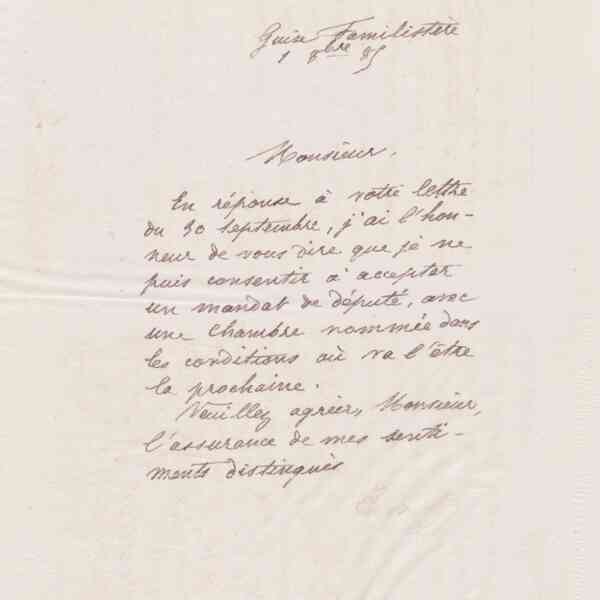 Guise Familistère
1 8bre 85
Monsieur,
En réponse à votre lettre
du 30 septembre, j'ai l'hon-
neur de vous dire que je ne
puis consentir à accepter
un mandat de député, avec
une Chambre nommée dans
les conditions où va l'être
la prochaine.
Veuillez agréer, Monsieur,
l'assurance de mes senti-
ments distingués